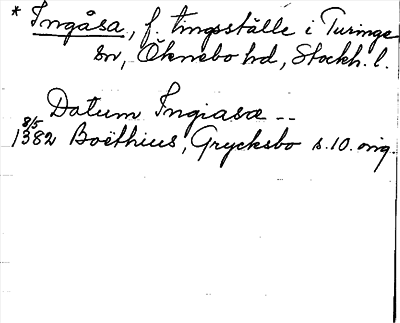 * Ingåsa, f. tingsställe i Turinge
sn, Öknebo hd, Stockh. l.
Datum Ingiasa --
8/5 1382 Boëthius, Grycksbo s. 10. orig.